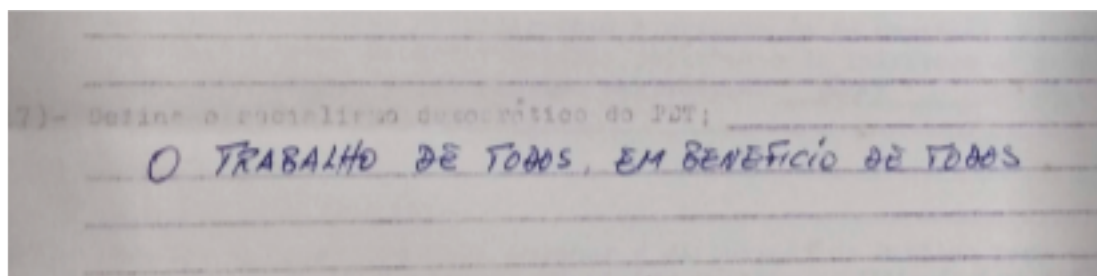 7)- Define o socialismo democrático do PDT;
O TRABALHO DE TODOS, EM BENEFÍCIO DE TODOS